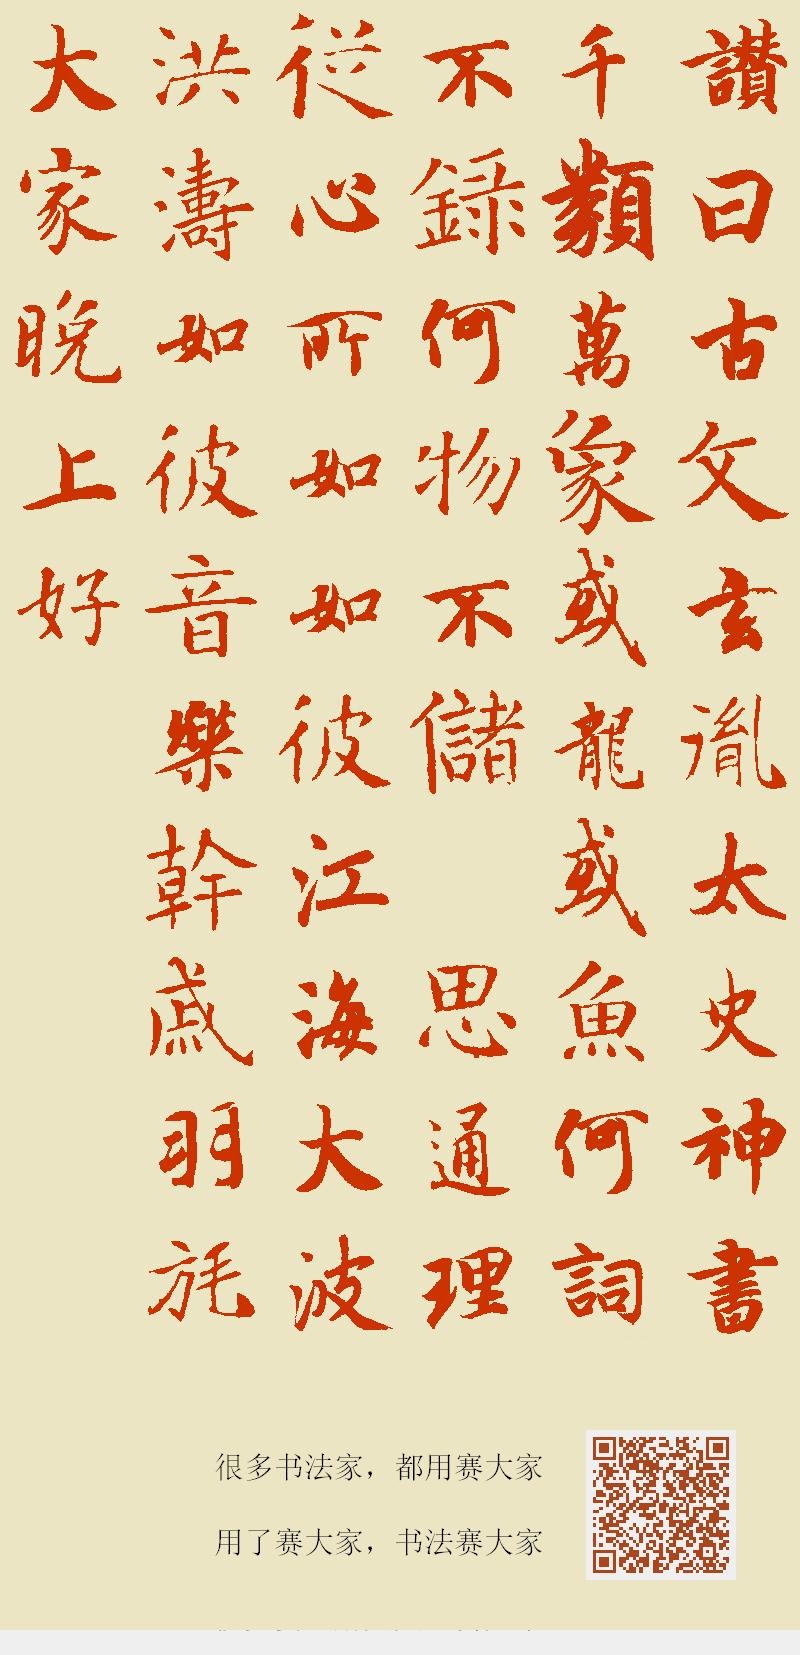 讃曰古文玄胤太史神書
千類萬象或龍或魚何詞
不錄何物不儲 思通理
從心所如如彼江海大波
洪濤如彼音樂幹戚羽旄
大家晚上好
很多书法家，都用赛大家
用了赛大家，书法赛大家